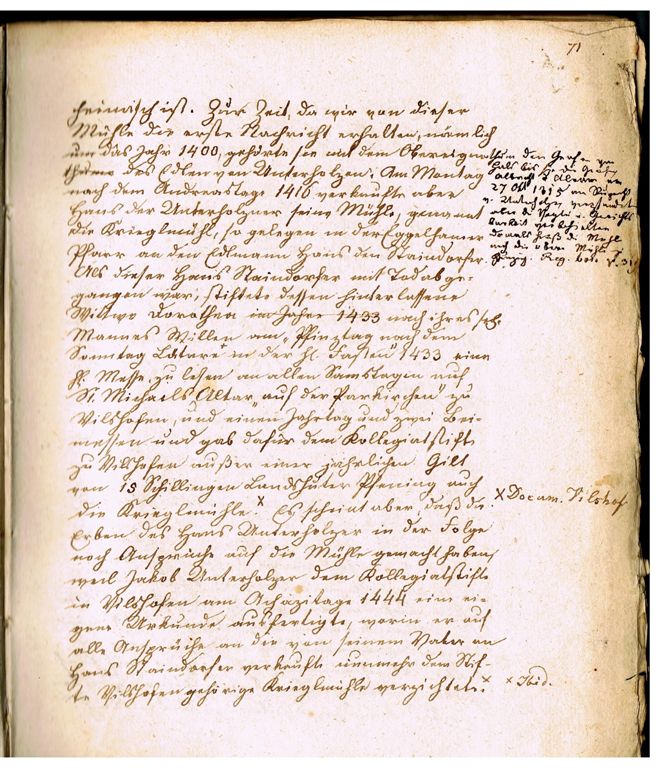 71
heimisch ist. Zur Zeit, da wir von dieser
Mühle die erste Nachricht erhalten, nämlich
um das Jahr 1400, gehörte sie mit dem Obereigen
thume des Edlen von Unterholzen. Am Montag
nach dem Andreastage 1416 verkaufte aber
Hans der Unterholzner seine Mühle, genannt
die Krieglmühl, so gelegen in der Eggelhamer
Pfarr an den Edlmann Hans den Staindorfer.
Als dieser Hans Staindorfer mit Tod abge-
gangen war, stiftete dessen hinterlassene
Wittwe Dorothea im Jahre 1433 nach ihres sel.
Mannes Willen am „Pfinztag nach dem
Sonntag Lätare in der hl. Fasten" 1433 eine
hl. Messe, zu lesen an allen Samstagen auf
St. Michaels Altar „auf der Parkirchen" zu
Vilshofen, und einen Jahrtag und zwei Bei-
messen und gab dafür dem Kollegiatstift
zu Vilshofen außer einer jährlichen Gilt
von 15 Schillingen Landshuter Pfening auch
die Krieglmühle. x Es scheint aber, daß die
Erben des Hans Unterholzer in der Folge
noch Ansprüche auf die Mühle gemacht haben,
weil Jakob Unterholzer dem Kollegiatstifte
in Vilshofen am Achazitage 1444 eine ei-
gene Urkunde ausfertigte, worin er auf
alle Ansprüche an die von seinem Vater an
Hans Staindorfer verkaufte nunmehr dem Stif-
te Vilshofen gehörige Krieglmühle verzichtete. x
thum den Grafen von
Hals bis sie die Grafen
27 Okt 1375 an Ruprecht
v. Unterholzen
aber die Vogtei u. Gerichts
barkeit vorbehalten
damals hieß die Mühl
noch die obere Mühle
Reg. boic.
x Docum. Vilshof.
x Ibid.